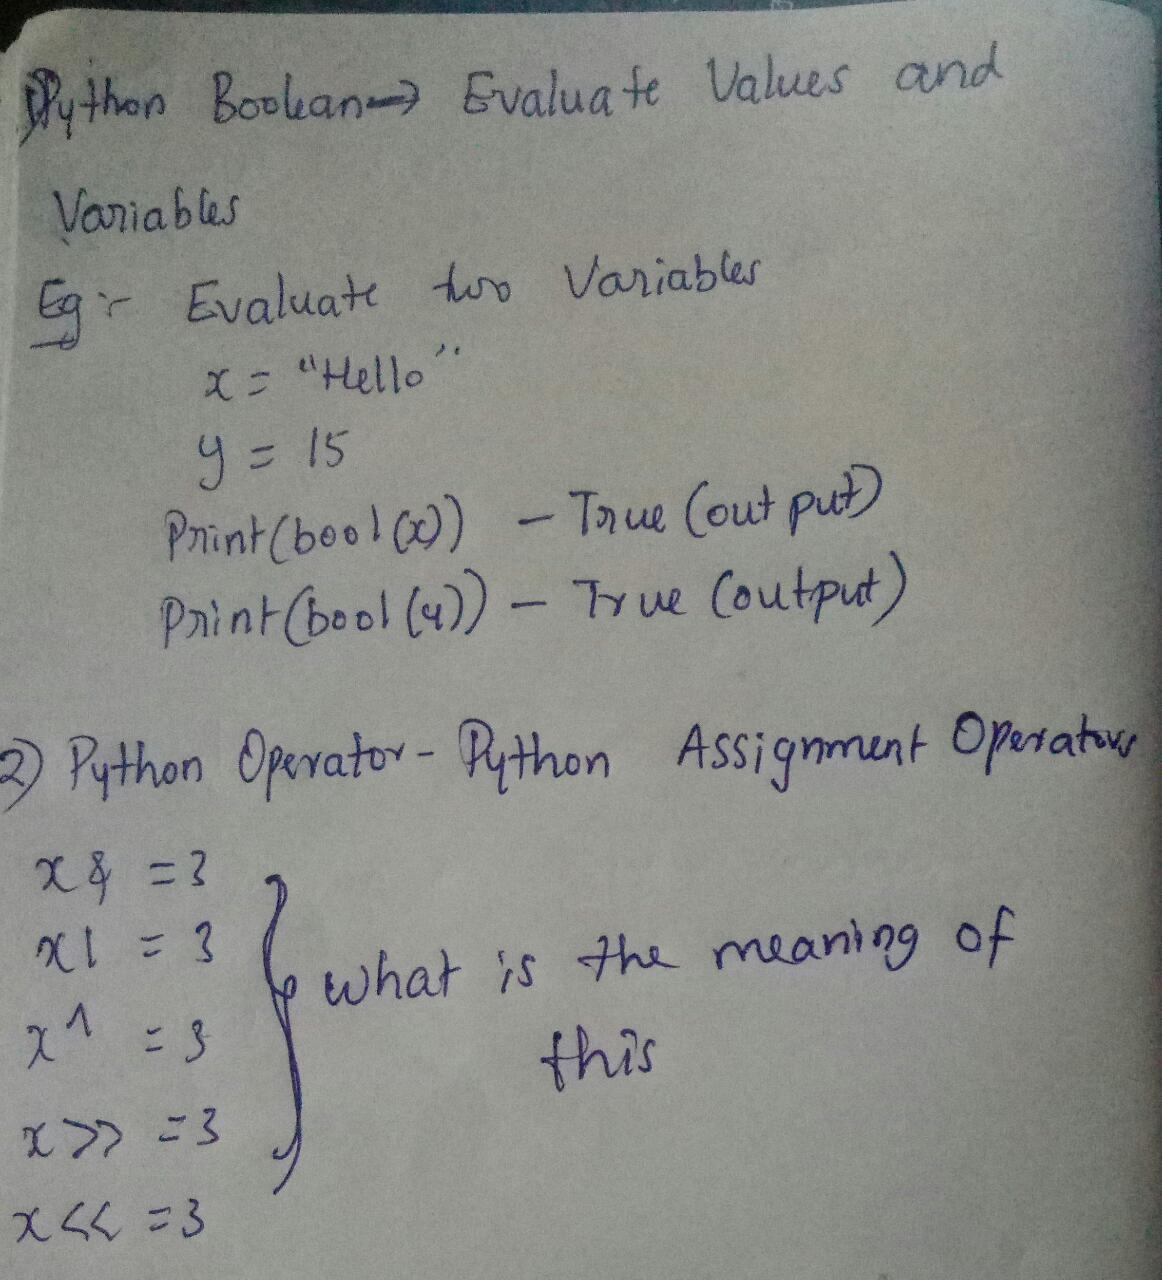 1) Python Boolean → Evaluate Values and
Variables
Eg :- Evaluate two Variables
x = "Hello"
y = 15
Print(bool(x)) - True (output)
Print(bool(y)) - True (output)
2) Python Operator - Python Assignment Operators
x & = 3
x | = 3
x ^ = 3
x >> = 3
x << = 3
what is the meaning of
this